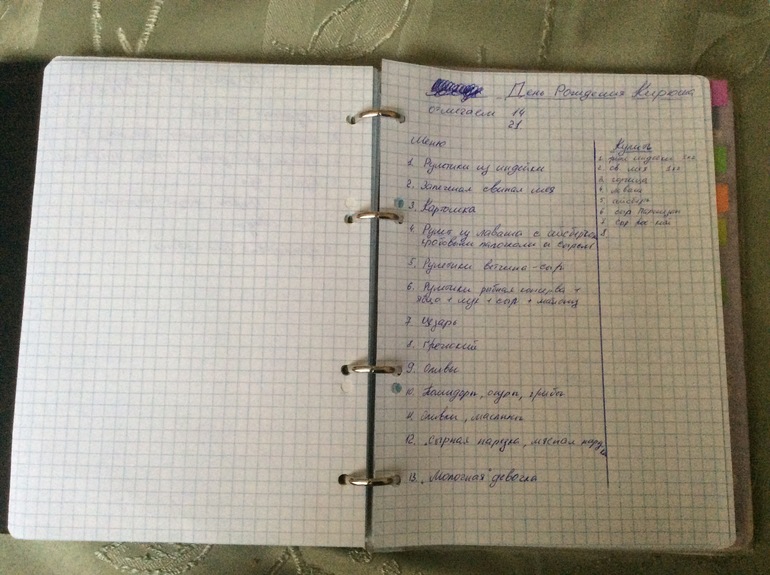 День Рождения Кирюшка
отмечаем 14
21
Меню
1. Рулетики из индейки
2. Запечная свиная шея
3. Картошка
4. Рулет из лаваша с айсбергом
крабовыми палочками и сыром
5. Рулетики ветчина-сыр
6. Рулетики рыбная консерва +
яйцо + лук + сыр + майонез
7. Цезарь
8. Греческий
9. Оливье
10. Помидоры, огурцы, грибы
11. Оливки, маслины
12. Сырная нарезка, мясная нарезка
13. "Молочная" девочка
Купить
1. филе индейки 2 кг
2. св. шея 2 кг
3. горчица
4. лаваш
5. айсберг
6. сыр Пармезан
7. сыр рос-кий
8.